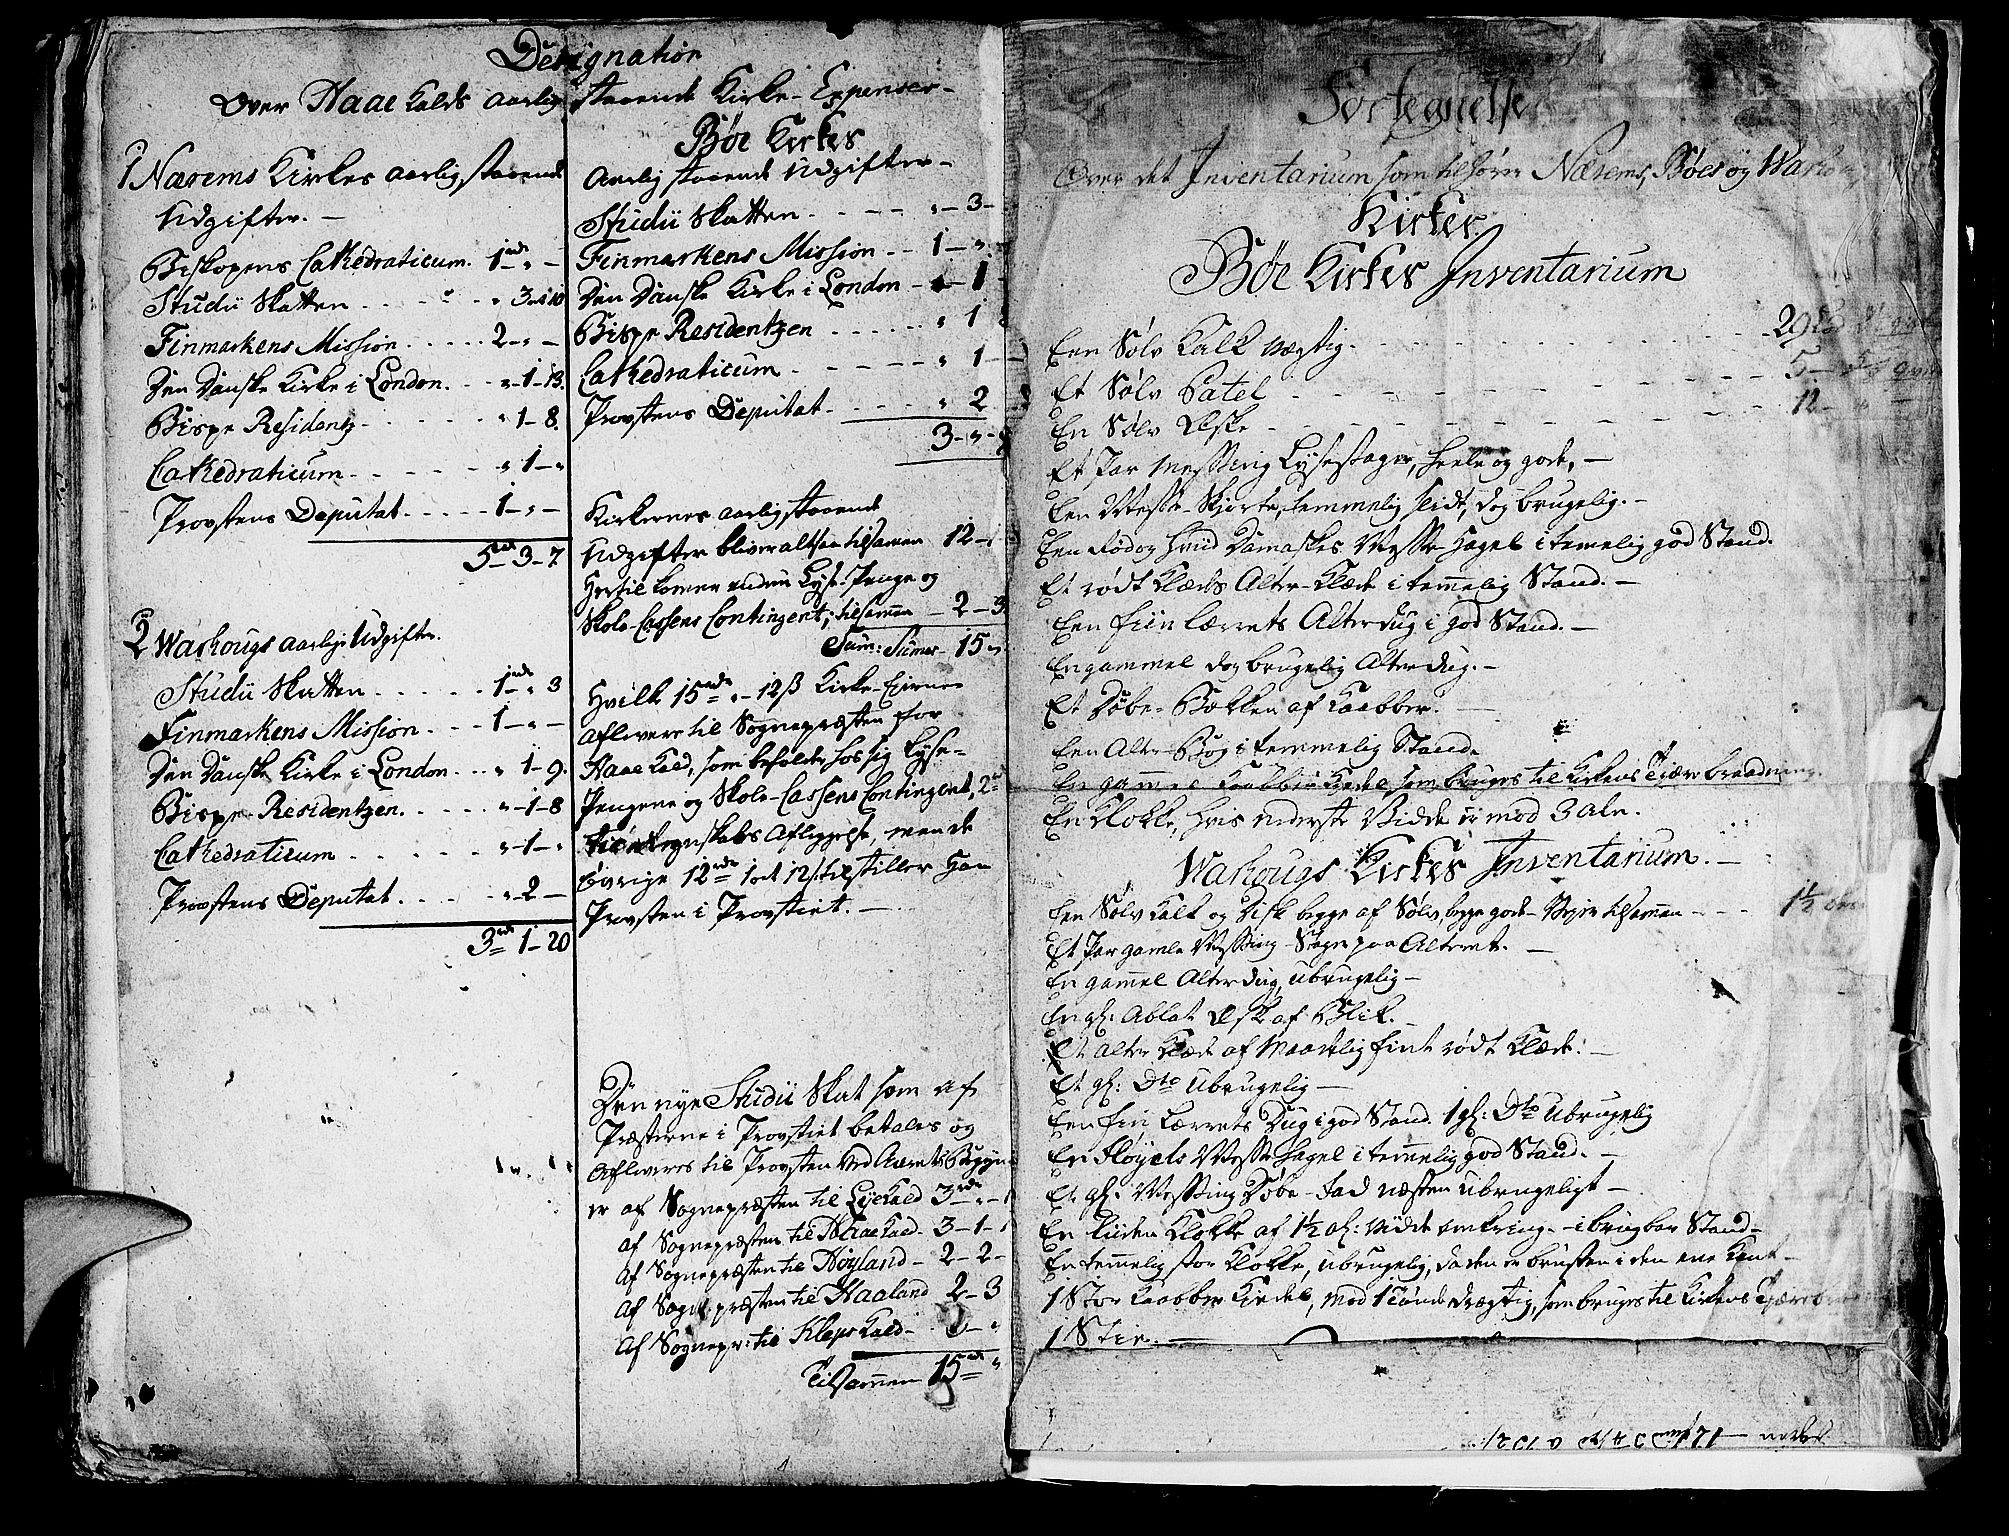 Designation
Over Haae Kalds aarlig staaende Kirke-Expenser-
1 Nærems Kirkes aarlig staaende
Udgifter. -
Biskopens Cathedraticum. 1 rd „ -
Studii Skatten . . . . „ 3-10
Finmarkens Mission . . . . 2-„-
Den Danske Kirke i London. . „-1-13.
Bispe Residentz . . . . „ 1-8.
Cathedraticum . . . „ 1-„
Provstens Deputat . . . . 1-„-
5 rd 3-7
2 Warhougs aarlige Udgifter.
Studii Skatten . . . . 1 rd „ 3
Finmarkens Mission . . 1-„-
Den Danske Kirke i London . . „ 1-9.
Bispe Residentzen. . . . „-1-8
Cathedraticum . . . . „-1-„
Provstens Deputat . . . . „-2-
3 rd 1-20
Bøe Kirkes
Aarlig staaende Udgifter-
Studii Skatten . . . . „-3-
Finmarkens Mission . . 1-„-
Den Danske Kirke i London - 1
Bispe Residentzen . . . . „ 1
Cathedraticum . . . . „ 1-
Provstens Deputat . . . . „ 2
3-„-
Kirkernes aarlig staaende
Udgifter bliver altsaa tilsamen 12-
Hertil komer endnu Lyse-Penge og
Skole-Cassens Contingent, tilsamen - 2-3.
Sum: Sumar - 15 „
Hvilke 15 rd „-12 ß Kirke-Eierne
aflevere til Sognepræsten for
Haae Kald, som beholder hos sig Lyse-
Pengene og Skole-Cassens Contingent, 2 rd
til Regnskabs Aflæggelse, men de
øvrige 12 rd 1 ort 12 ß tilstiller Han
Provsten i Provstiet. -
Den nye Studii Skat som af
Præsterne i Provstiet betales og
afleveres til Provsten ved Aarets Begyn
er af Sognepræsten til Lye Kald 3 rd „-
af Sognepræsten til Haae Kald- 3-1-
af Sognepræsten til Høyland - 2-2-
af Sognepræsten til Haaland 2-3
af Sognepr: til Klep Kald-
Tilsammen 15 rd „
Fortegnelse
Over det Inventarium som tilhører Nærems, Bøes og Warhoug
Kirker
Bøe Kirkes Inventarium
Een Sølv Kalk vægtig. - - - 29 Lod
Et Sølv Patel - - - 5-
En Sølv Æske - - - 12- „ -
Et Par Messing Lysestager, heele og gode, -
Een Messe-Skjorte, temmelig slidt, dog brugelig. -
Een Rød og Hvid Damaskes Messe Hagel i temelig god Stand.
Et rødt Klædes Alter-Klæde i temmelig Stand. -
Een fiin Lærrets Alterdug i god Stand. -
En gammel dog brugelig Alterdug. -
Et Døbe-Bækken af Kaabber. -
Een Alter-Bog i temmelig Stand.
En gammel Kaabber Kiedel, som bruges til Kirkens Tjærebreedning.
En Klokke, hvis nederste Vidde er mod 3 Aln.
Wahougs Kirkes Inventarium. -
Een Sølv Kalk og Disk begge af Sølv, begge gode- Veyer tilsammen - - - 1½
Et Par gamle Messing-Stager paa Alteret. -
En gammel Alterdug, ubrugelig -
En gl: Ablat Æske af Blik. -
Et Alter Klæde af maadelig fint rødt Klæde. -
Et gl: Dto Ubrugelig -
Een fin Lærrets Dug i god Stand. 1 gl: Dto Ubrugelig
En Fløyels Messe Hagel i temmelig god Stand. -
Et gl: Messing Døbe-Fad næsten ubrugeligt -
En liden Klokke af 1½ al: vidde omkring - i brugbar Stand -
En temmelig stor Klokke, ubrugelig, da den er brusten i den ene Kant -
1 Stor Kaabber Kiedel, mod 1 Tønde drægtig, som bruges til Kirkens Tjærebre
1 Stie. -